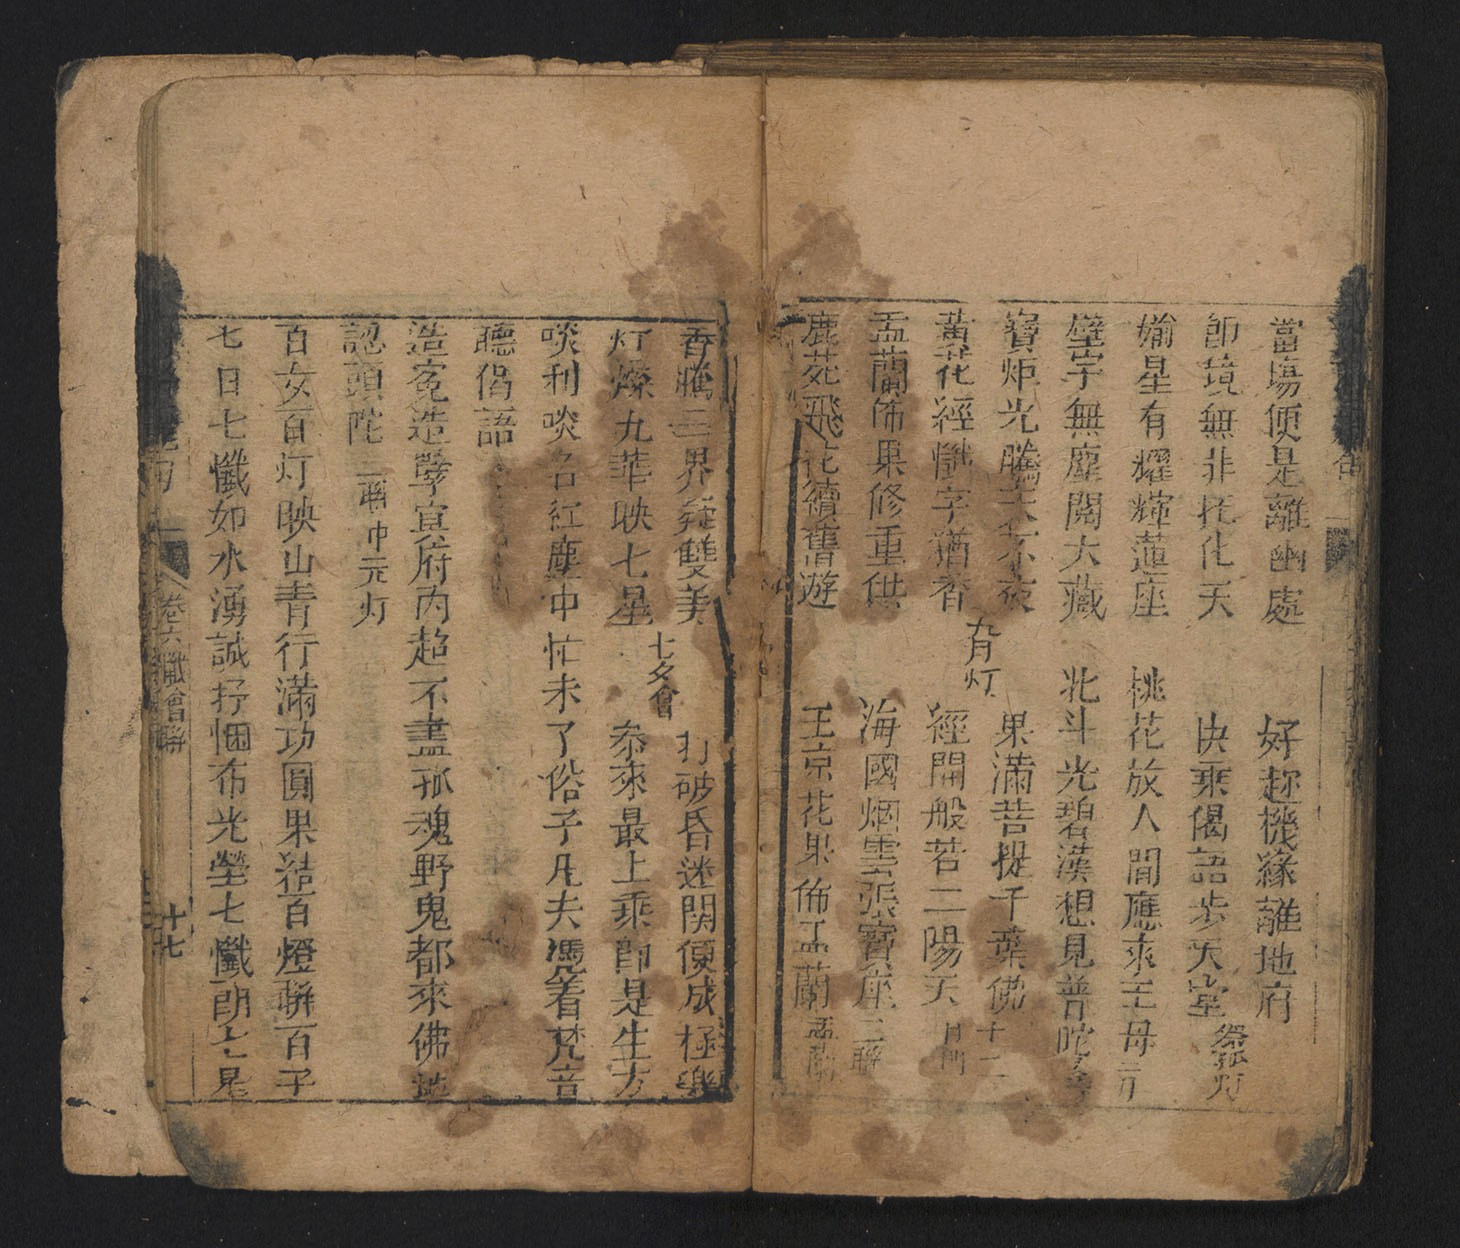 當塲便是離幽處 好趂機緣離地府
卽境無非托化天 快乘偈語步天堂 祭孤灯
婺星有耀輝蓮座 桃花放人間應來王母
璧宇無塵開大藏 北斗光碧漢想見普陀
寶炬光騰天不夜 九月灯 果滿菩提千葉佛 十二
黃花經懺字猶香 經開般若二陽天
盂蘭佈果修重供 海國烟雲張寶座 三聯
鹿苑飛花續舊遊 王京花果佈盂蘭 盂蘭
香騰三界凝雙美 七夕會 打破昏迷関便成極樂
灯燦九華映七星 叅來最上乘卽是生方
啖利啖名紅塵中忙未了俗子凡夫凴着梵音
聽偈語
造寃造孽宜府丙超不盡孤魂野鬼都來佛地
認頭陀 二聯中元灯
百女百灯映山青行滿功圓果結百燈聯百子
七日七懺如水湧誠抒悃布光瑩七懺朗七星
卷六 懺會聯
十七